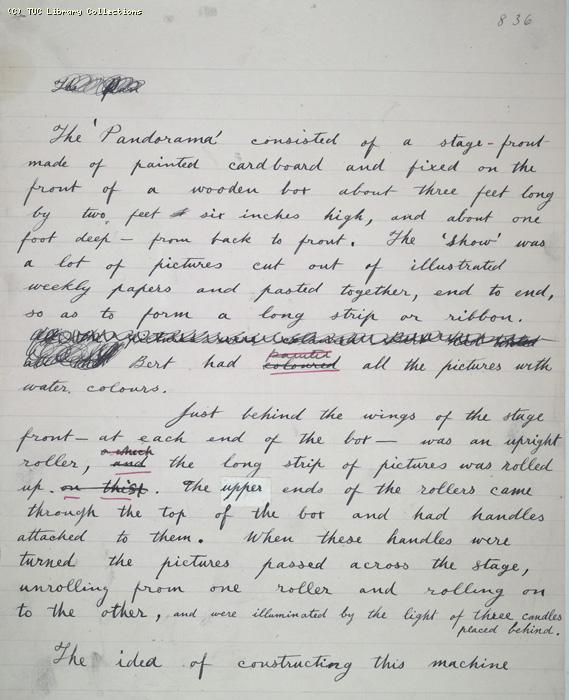 (C) TUC Library Collections
836
The
The 'Pandorama' consisted of a stage-front
made of painted cardboard and fixed on the
front of a wooden box about three feet long
by two feet six inches high, and about one
foot deep — from back to front. The 'show' was
a lot of pictures cut out of illustrated
weekly papers and pasted together, end to end,
so as to form a long strip or ribbon.
painted
Bert had coloured all the pictures with
water colours.
Just behind the wings of the stage
front — at each end of the box — was an upright
or which
roller, and the long strip of pictures was rolled
up on this. The upper ends of the rollers came
through the top of the box and had handles
attached to them. When these handles were
turned the pictures passed across the stage,
unrolling from one roller and rolling on
to the other, and were illuminated by the light of three candles
placed behind.
The idea of constructing this machine